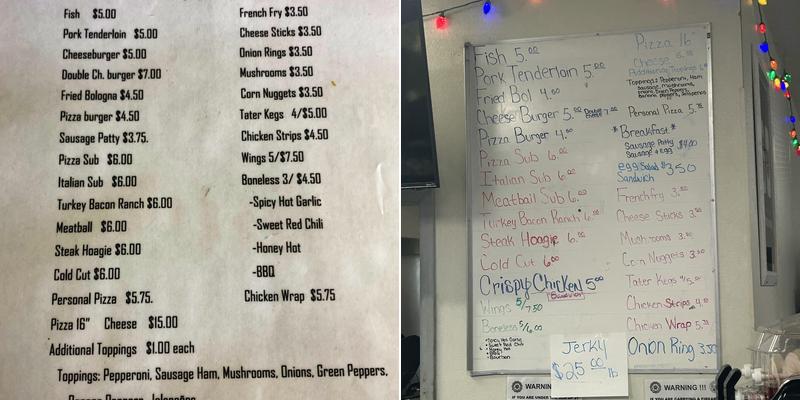 Fish $5.00
Pork Tenderloin $5.00
Cheeseburger $5.00
Double Ch. burger $7.00
Fried Bologna $4.50
Pizza burger $4.50
Sausage Patty $3.75.
Pizza Sub $6.00
Italian Sub $6.00
Turkey Bacon Ranch $6.00
Meatball $6.00
Steak Hoagie $6.00
Cold Cut $6.00
Personal Pizza $5.75.
Pizza 16" Cheese $15.00
Additional Toppings $1.00 each
Toppings: Pepperoni, Sausage Ham, Mushrooms, Onions, Green Peppers,
French Fry $3.50
Cheese Sticks $3.50
Onion Rings $3.50
Mushrooms $3.50
Corn Nuggets $3.50
Tater Kegs 4/$5.00
Chicken Strips $4.50
Wings 5/$7.50
Boneless 3/ $4.50
-Spicy Hot Garlic
-Sweet Red Chili
-Honey Hot
-BBQ
Chicken Wrap $5.75
Fish 5.00
Pork Tenderloin 5.00
Fried Bol 4.50
Cheese Burger 5.00
Pizza Burger 4.50
Pizza Sub 6.00
Italian Sub 6.00
Meatball Sub 6.00
Turkey Bacon Ranch 6.00
Steak Hoagie 6.00
Cold Cut 6.00
Crispy Chicken 5.00
Sandwich
Wings 5/7.50
Boneless 5/6.00
Pizza 16"
Cheese
Additional Toppings
Toppings: Pepperoni, Ham
Sausage, mushrooms,
onions, Green Peppers,
Banana peppers, Jalapenos
Personal Pizza 5.75
*Breakfast*
Sausage Patty
Sausage + egg $4.00
egg Salad $3.50
Sandwich
French fry 3.50
Cheese Sticks 3.50
Mushrooms 3.50
Corn Nuggets 3.50
Tater Kegs 4/5.00
Chicken Strips 4.50
Chicken Wrap 5.75
Onon Ring 3.50
Jerky
$25.00 lb
WARNING
WARNING !!!